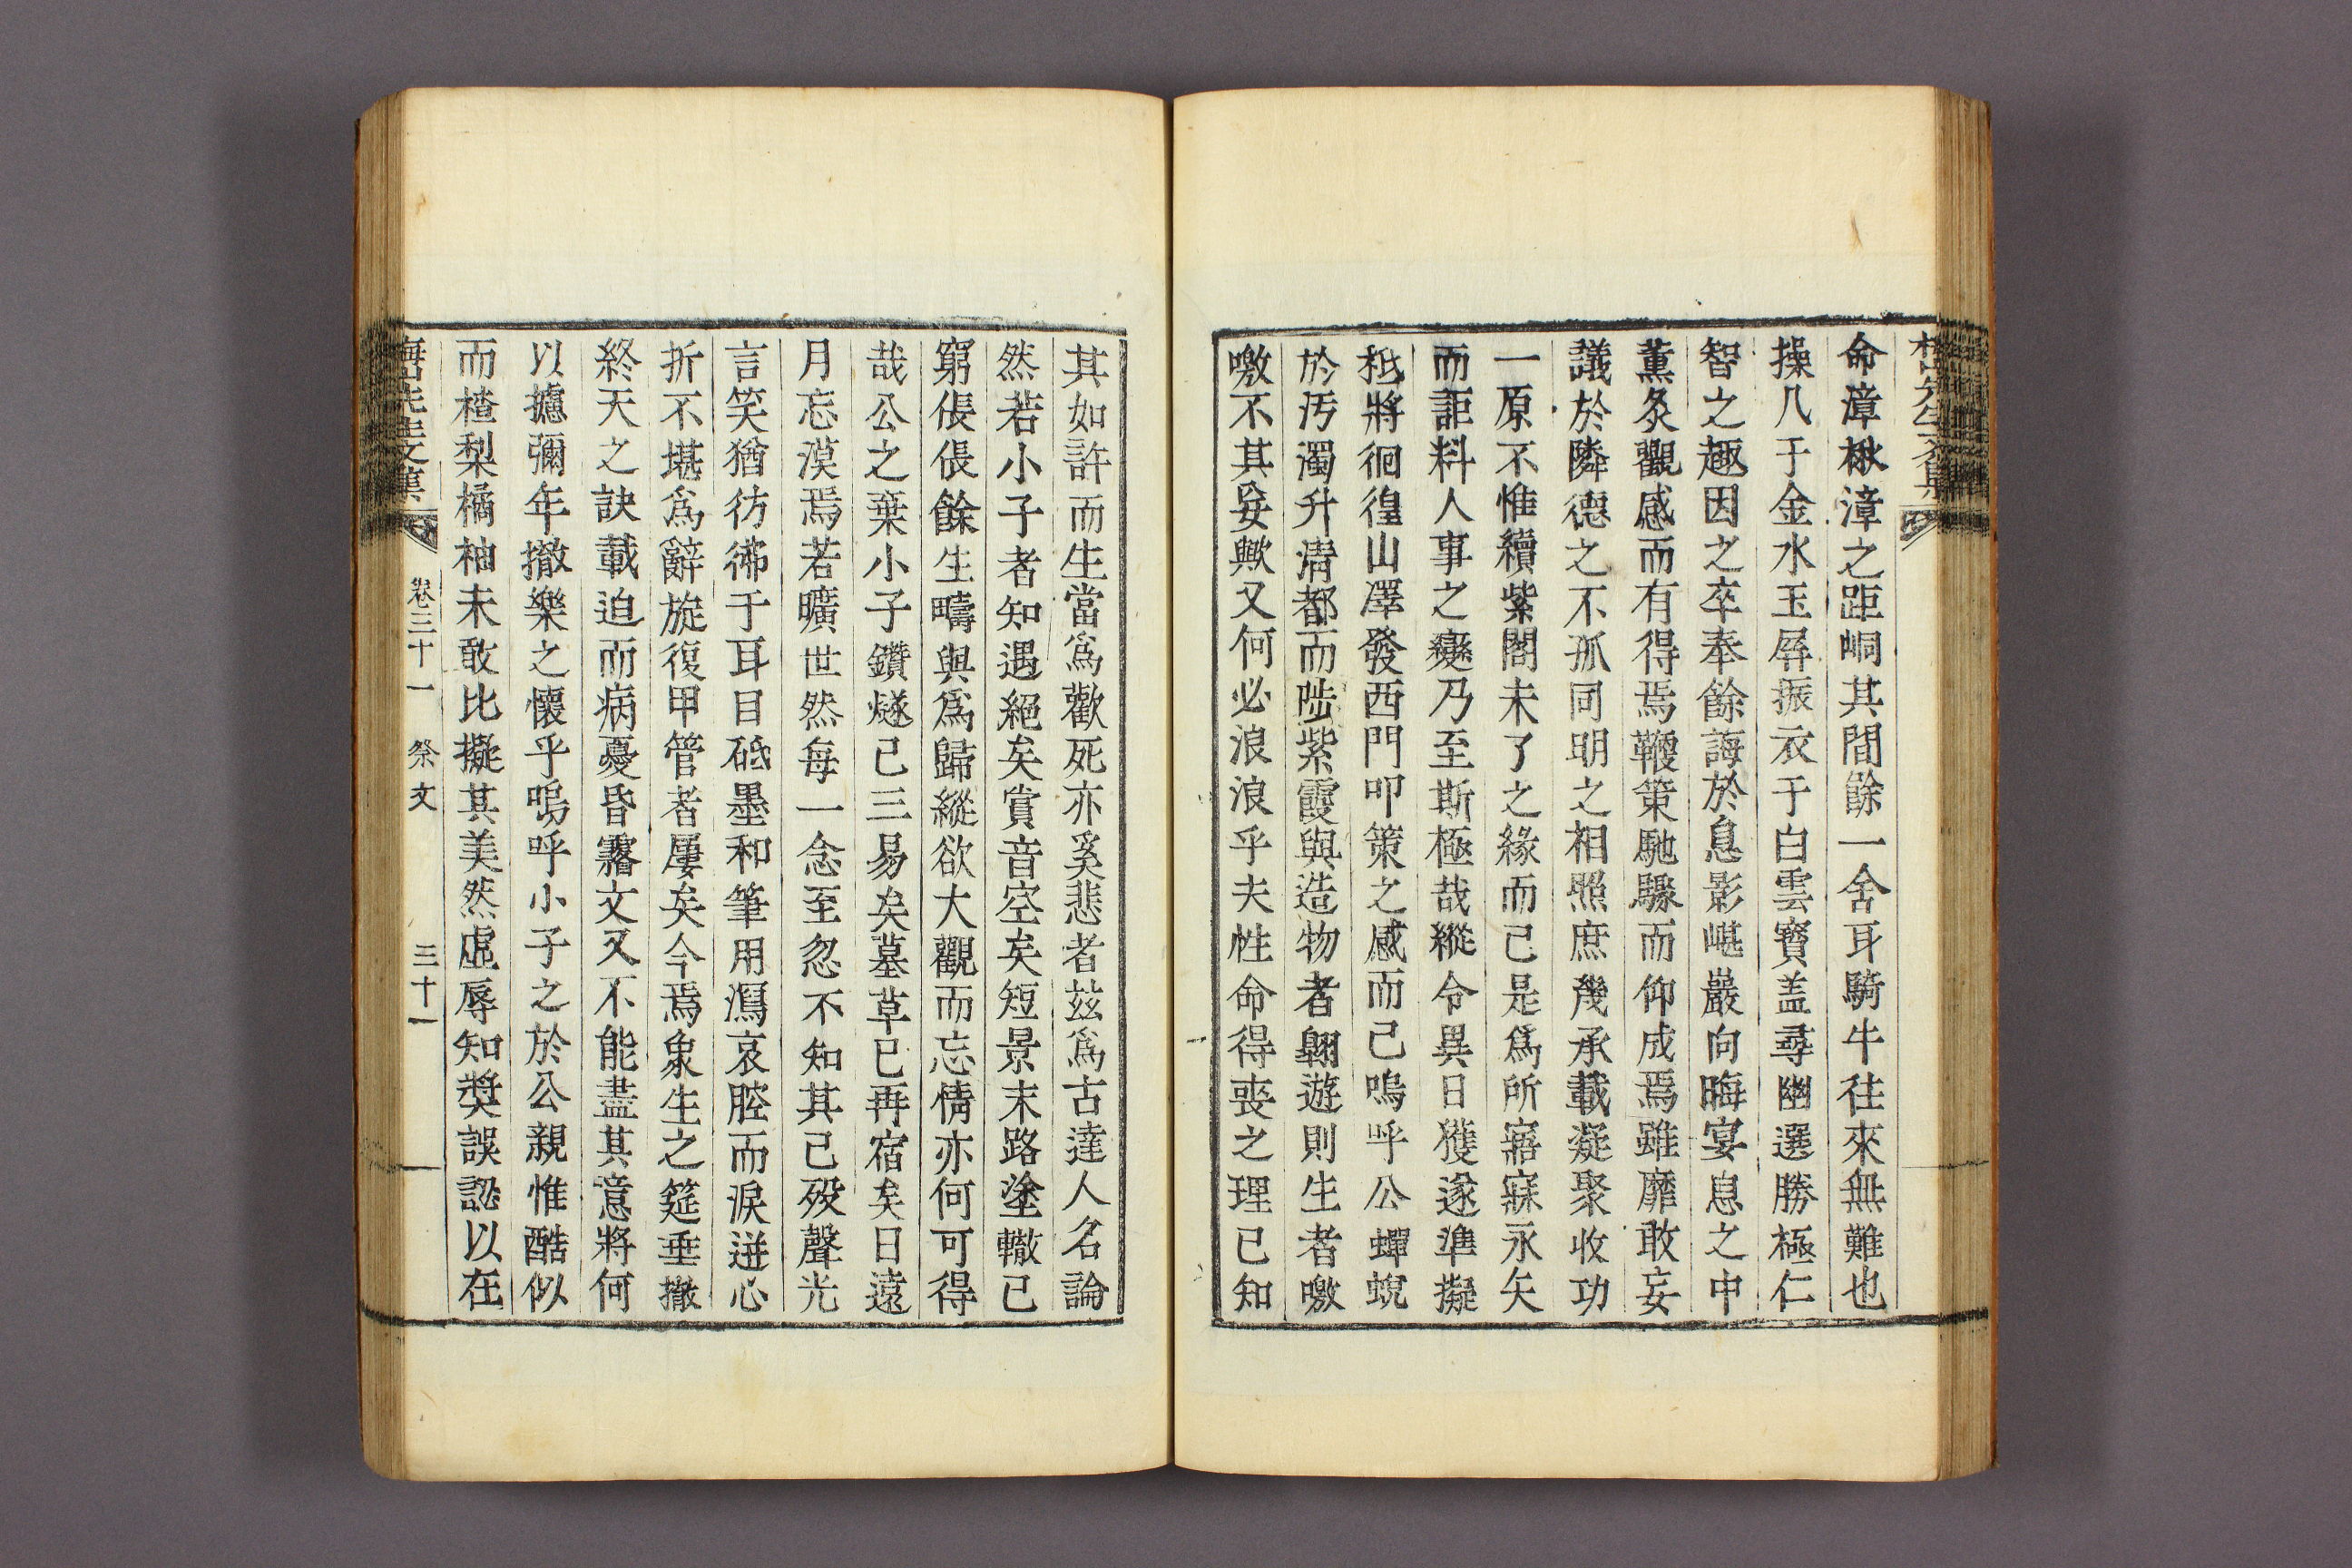 命漳楸漳之距峒其間餘一舍耳騎牛徃來無難也
操几于金水玉屏振衣于白雲寶盖尋幽選勝極仁
智之趣因之卒奉餘誨於息影嵁巖向晦宴息之中
薰炙觀感而有得焉鞭策馳驟而仰成焉雖靡敢妄
議於隣德之不孤同明之相照庶幾承載凝聚收功
一原不惟續紫閣未了之緣而已是爲所寤寐永矢
而詎料人事之變乃至斯極哉縱令異日獲遂準擬
秪將徊徨山澤發西門叩策之感而已嗚呼公蟬蛻
於汚濁升淸都而陟紫霞與造物者翺遊則生者噭
噭不其妄歟又何必浪浪乎夫性命得喪之理已知
其如許而生當爲歡死亦奚悲者玆爲古達人名論
然若小子者知遇絕矣賞音空矣短景末路塗轍已
窮倀倀餘生疇與爲歸縱欲大觀而忘情亦何可得
哉公之棄小子鑽燧已三易矣墓草已再宿矣日遠
月忘漠焉若曠世然每一念至忽不知其已歿聲光
言笑猶彷彿于耳目砥墨和筆用瀉哀腔而淚迸心
折不堪爲辭旋復甲管者屢矣今焉象生之筵垂撤
終天之訣載迫而病憂昏霿文又不能盡其意將何
以攄彌年撤樂之懷乎嗚呼小子之於公親惟酷似
而樝梨橘柚未敢比擬其美然虛辱知奬誤認以在
卷三十一 祭文 三十一